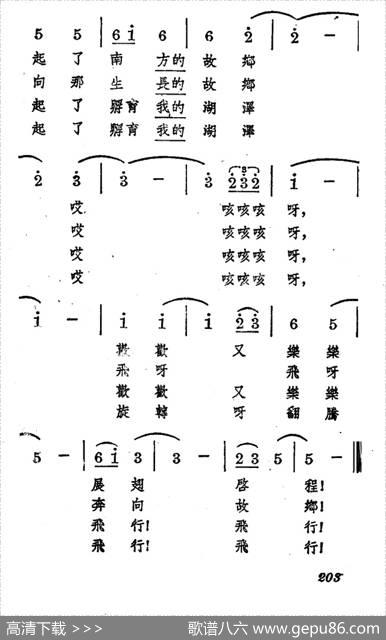 5 5 | 6i 6 6 | 2 2 | 2 —
起 了 南 方的 故 鄉
向 那 生 長的 故 鄉
起 了 孵育 我的 湖 澤
起 了 孵育 我的 湖 澤
2 3 | 3 — | 3 232 | i —
哎 咳咳咳 呀，
哎 咳咳咳 呀，
哎 咳咳咳 呀，
哎 咳咳咳 呀，
i — | i i | i 23 | 6 5
歡 歡 又 樂 樂
飛 呀 飛 呀
歡 歡 又 樂 樂
旋 轉 呀 翻 騰
5 — | 6i 3 | 3 — | 23 5 | 5 —
展 翅 啓 程！
奔 向 故 鄉！
飛 行！ 飛 行！
飛 行！ 飛 行！
203
高清下载 >>>
歌谱八六 www.gepu86.com